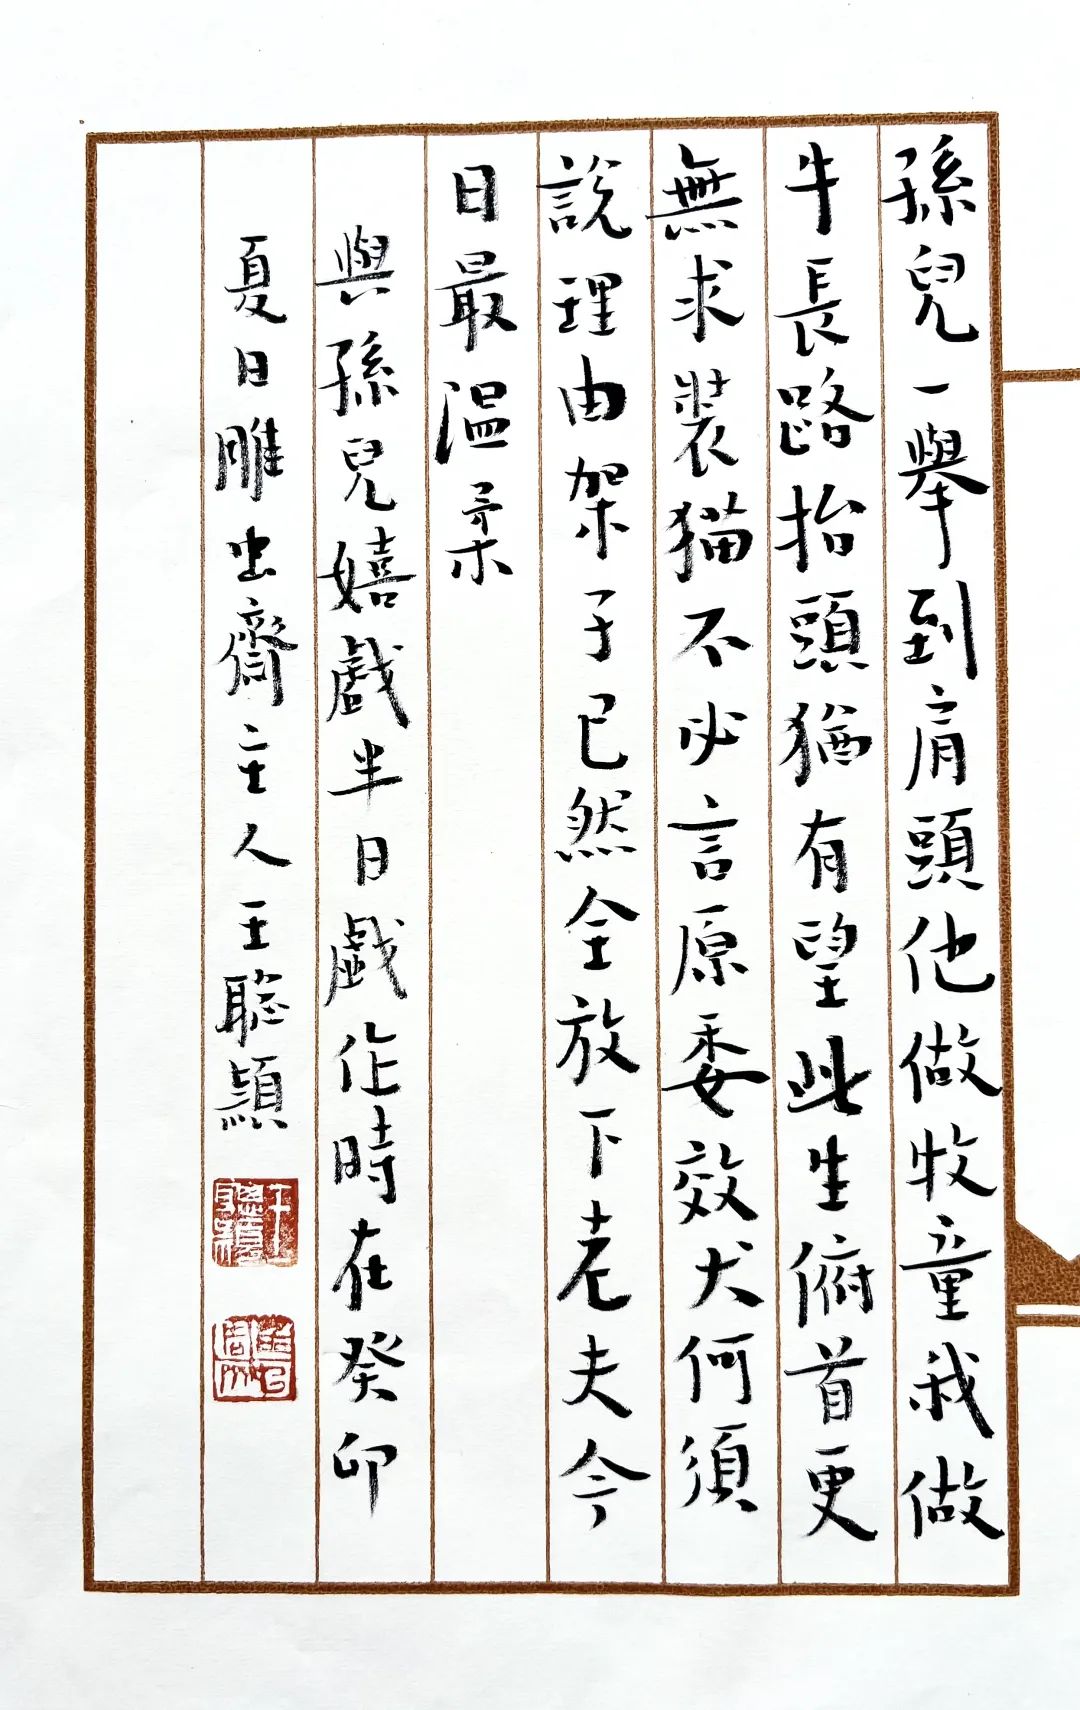 孫兒一舉到肩頭他做牧童我做
牛長路抬頭猶有望此生俯首更
無求裝猫不必言原委效犬何須
說理由架子已然全放下老夫今
日最温柔
與孫兒嬉戲半日戲作時在癸卯
夏日雕虫齋主人王聰穎